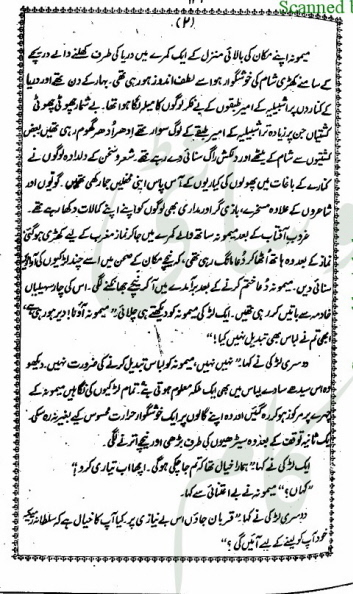 Scanned b
(۲)
میمونہ اپنے مکان کی بالائی منزل کے ایک کمرے میں دریا کی طرف کھلنے والے دریچے
کے سامنے کھڑی شام کی خوشگوار ہوا سے لطف اندوز ہو رہی تھی۔ بہار کے دن تھے اور دریا
کے کناروں پر اشبیلیہ کے امیر طبقوں کے بے فکر لوگوں کا میلا لگا ہوا تھا۔ بے شمار چھوٹی چھوٹی
کشتیاں جن پر زیادہ تر اشبیلیہ کے امیر طبقے کے لوگ سوار تھے ادھر اُدھر گھوم رہی تھیں بعض
کشتیوں سے شام کے میٹھے اور دلکش راگ سنائی دے رہے تھے۔ شعر و سخن کے دلدادہ لوگوں نے
کنارے کے باغات میں پھولوں کی کیاریوں کے آس پاس اپنی محفلیں جما رکھی تھیں۔ گویّوں اور
شاعروں کے علاوہ مسخرے، بازی گر اور مداری بھی لوگوں کو اپنے اپنے کمالات دکھا رہے تھے۔
غروبِ آفتاب کے بعد میمونہ ساتھ والے کمرے میں جا کر نماز مغرب کے لیے کھڑی ہو گئی
نماز کے بعد وہ ہاتھ اُٹھا کر دُعا مانگ رہی تھی، کہ نیچے مکان کے صحن میں اسے چند لڑکیوں کی آواز
سنائی دیں۔ میمونہ دُعا ختم کرنے کے بعد برآمدے میں آ کر نیچے جھانکنے لگی۔ اس کی چار سہیلیاں
خادمہ سے باتیں کر رہی تھیں۔ ایک لڑکی میمونہ کو دیکھتے ہی چلائی" میمونہ آؤ نا! دیر ہو رہی ہے،
ابھی تم نے لباس بھی تبدیل نہیں کیا!"
دوسری لڑکی نے کہا۔" نہیں نہیں، میمونہ کو لباس تبدیل کرنے کی ضرورت نہیں۔ دیکھو
وہ اس سیدھے سادے لباس میں بھی ایک ملکہ معلوم ہوتی ہے۔" تمام لڑکیوں کی نگاہیں میمونہ کے
چہرے پر مرکوز ہو کر رہ گئیں اور وہ اپنے گالوں پر ایک خوشگوار حرارت محسوس کیے بغیر نہ رہ سکی۔
ایک ثانیہ توقف کے بعد وہ سیڑھیوں کی طرف بڑھی اور نیچے اترنے لگی۔
ایک لڑکی نے کہا۔" ہمارا خیال تھا کہ تم جا چکی ہو گی۔ اچھا اب تیاری کرو!"
"کہاں؟" میمونہ نے بے اعتنائی سے کہا۔
دوسری لڑکی نے کہا۔" قربان جاؤں اس بے نیازی پر۔ کیا آپ کا خیال ہے کہ سلطانہ
خود آپ کو لینے کے لیے آئیں گی؟"